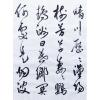 晴川歷歷漢陽
樹芳草萋萋鸚
鵡洲日暮鄉關
何處是烟波